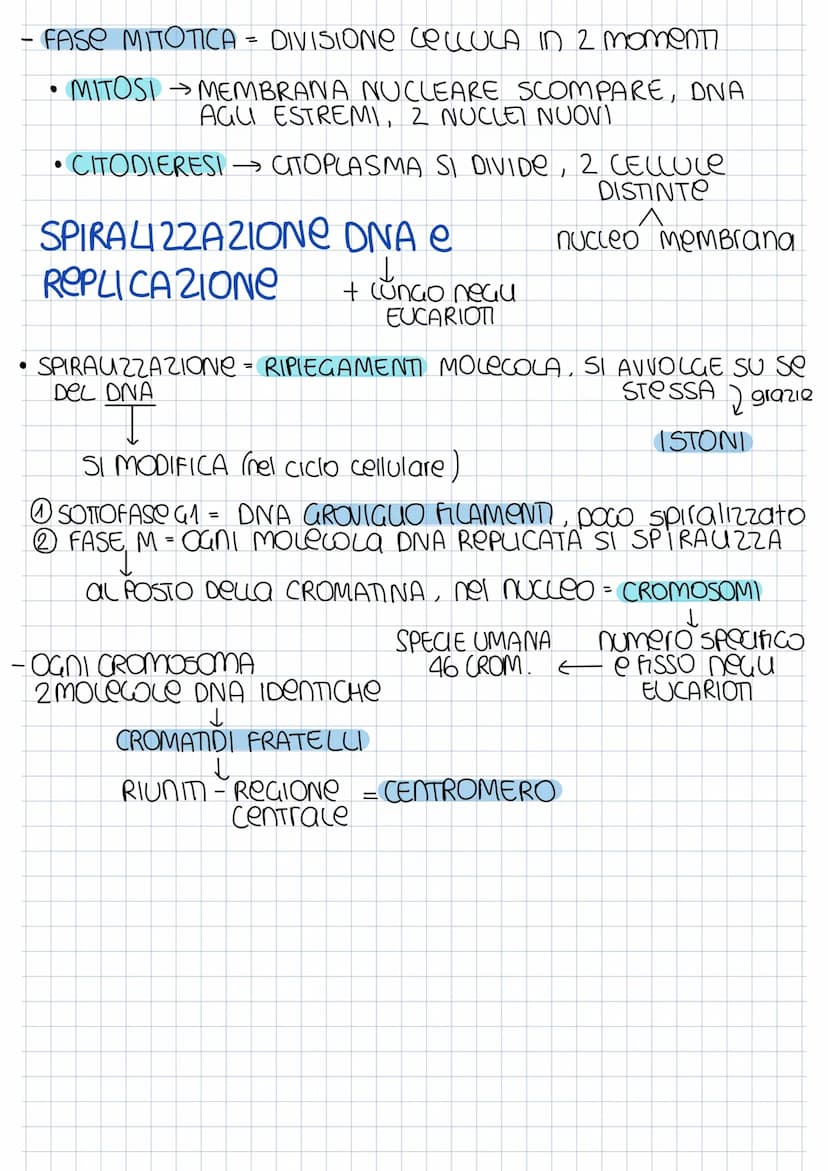 - FASE MITOTICA = DIVISIONE CELLULA IN 2 MOMENTI
• MITOSI → MEMBRANA NUCLEARE SCOMPARE, DNA
AGLI ESTREMI, 2 NUCLEI NUOVI
• CITODIERESI → CITOPLASMA SI DIVIDE, 2 CELLULE
DISTINTE
NUCLEO MEMBRANA
SPIRALIZZAZIONE DNA E
REPLICAZIONE
↓
+ LUNGO NEGLI
EUCARIOTI
• SPIRALIZZAZIONE = RIPIEGAMENTI MOLECOLA. SI AVVOLGE SU SE
DEL DNA
STESSA ↓ grazie
ISTONI
↓
SI MODIFICA (nel ciclo cellulare)
① SOTTOFASE G1 = DNA GROVIGLIO FILAMENTI, poco spiralizzato
② FASE M = OGNI MOLECOLA DNA REPLICATA SI SPIRALIZZA
↓
AL POSTO DELLA CROMATINA, nel nucleo = CROMOSOMI
↓
NUMERO SPECIFICO
E FISSO NEGLI
EUCARIOTI
← SPECIE UMANA
46 CROM.
- OGNI CROMOSOMA
2 MOLECOLE DNA IDENTICHE
↓
CROMATIDI FRATELLI
↓
RIUNITI - REGIONE = CENTROMERO
CENTRALE